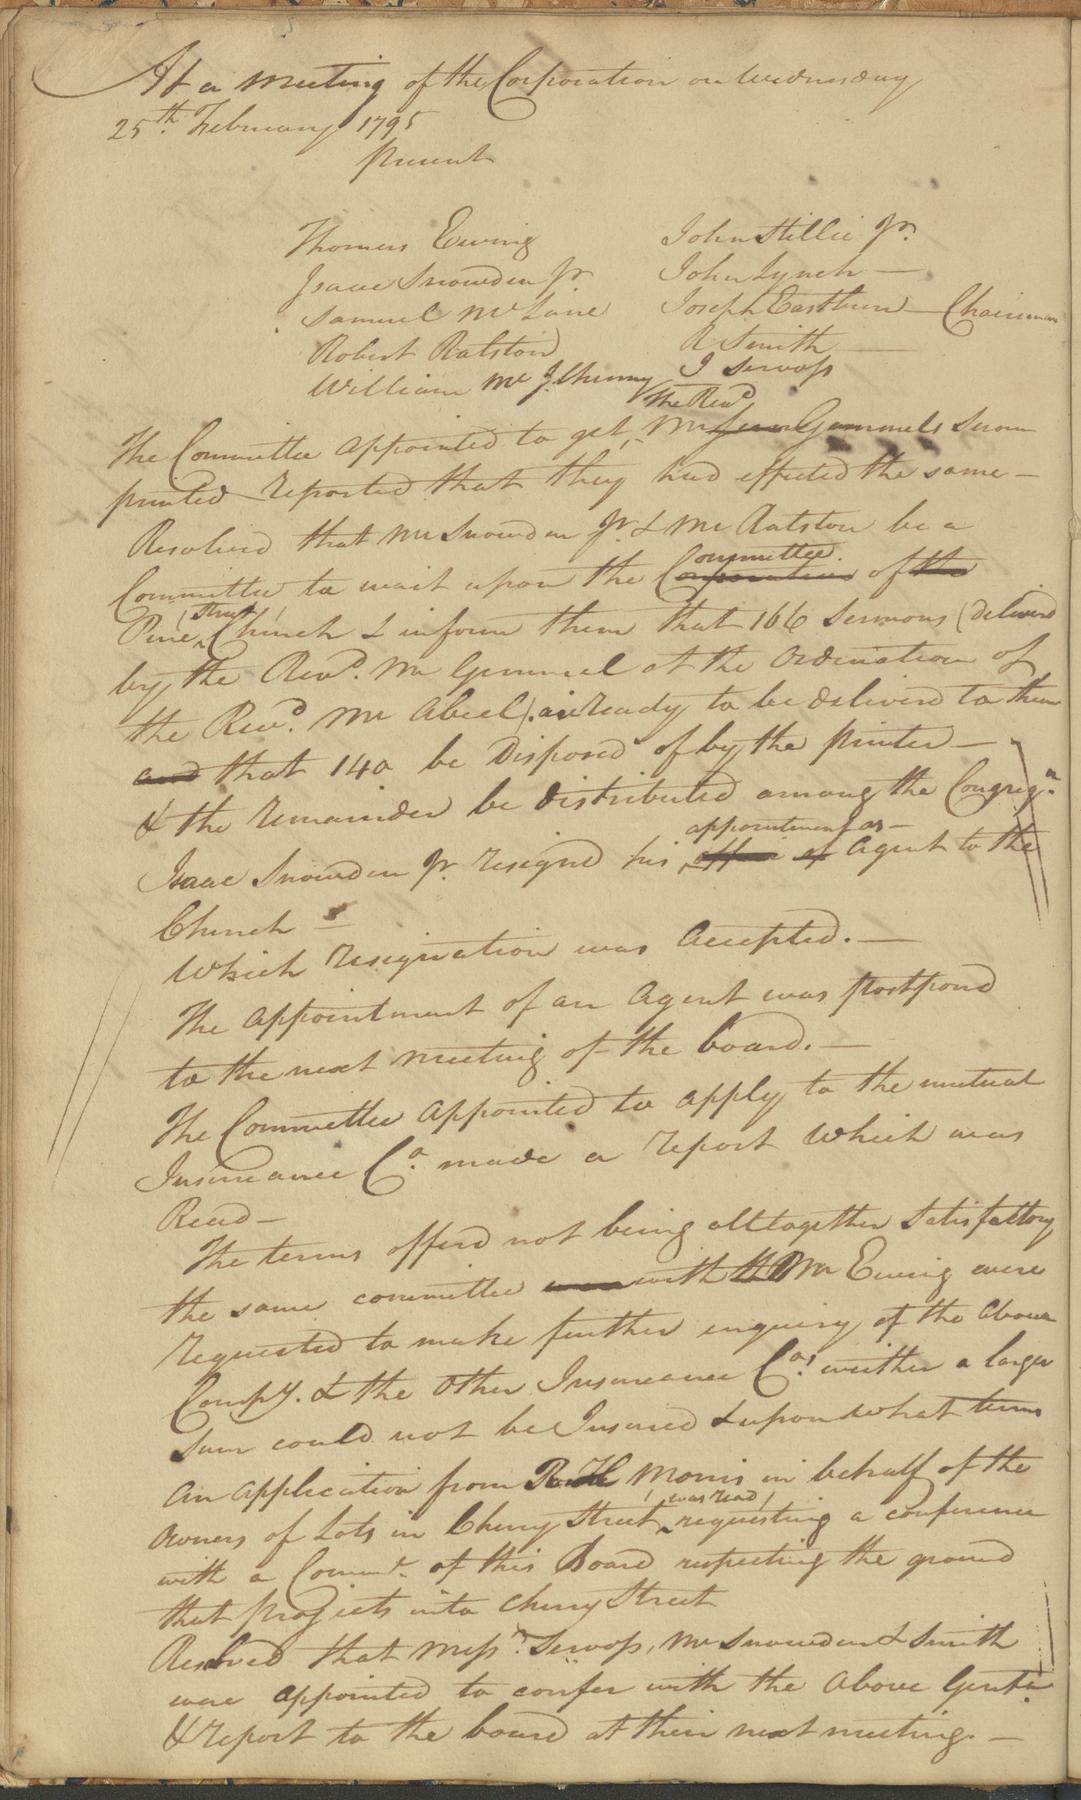 At a meeting of the Corporation on Wednesday
25th. February 1795
Present
Thomas Ewing John Stillie Jr.
Isaac Snowden Jr John Lynch —
Samuel McLane Joseph Eastburn — Chairman
Robert Ralston R Smith —
William Mc J. Chunny J Servoss
the Revd.
The Committee appointed to get, Mr Gummels Sermon
printed reported that they had effected the same —
Resolved that Mr Snowden Jr. & Mr Ralston be a
Committee.
Committee to wait upon the Corporation of the
(Street)
Pine Church & inform them that 166 Sermons (deliverd
by the Revd. Mr Gemmel at the Ordination of
the Revd. Mr Abeel) are ready to be deliverd to them
and that 140 be Disposed of by the printer —
& the remainder be distributed among the Congregn.
appointment as —
Isaac Snowden Jr. resignd his office of Agent to the
Church —
Which resignation was Accepted. —
The appointment of an Agent was postpond
to the next meeting of the board. —
The Committee appointed to apply to the mutual
Insureance Co. made a report which was
Read —
The terms offerd not being alltogether satisfactory
the same committee with Mr Ewing were
requested to make further enquiry of the above
Compy. & the other Insureance Cos. wether a larger
Sum could not be Insured & upon what terms
An application from Morris in behalf of the
(was read)
Owners of Lots in Cherry Street requesting a conference
with a Comme. of this Board respecting the ground
that projects into Cherry Street
Resolved that Messrs. Servoss, Mr Snowden & Smith
were appointed to confer with the above Gentn.
& report to the board at their next meeting. —